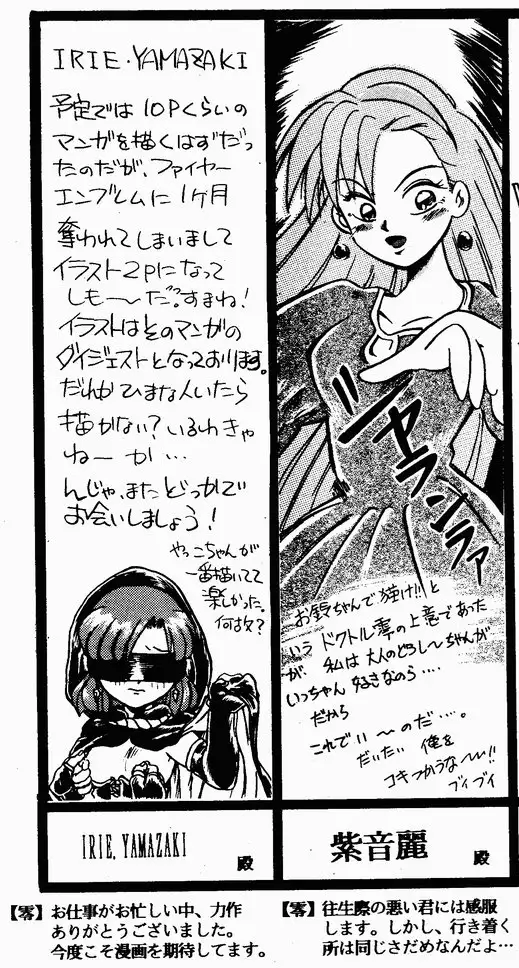 IRIE・YAMAZAKI
予定では10Pくらいの
マンガを描くはずだっ
たのだが、ファイヤー
エンブレムに1ヶ月
奪われてしまいまして
イラスト2Pになって
しも〜だ?すまね!
イラストはそのマンガの
ダイジェストとなっております。
だれか ひまな人いたら
描かない?いるわきゃ
ねーか…
んじゃ、またどっかで
お会いしましょう!
やっこちゃんが
一番描いてて
楽しかった。
何故?
IRIE. YAMAZAKI
殿
【零】お仕事がお忙しい中、力作
ありがとうございました。
今度こそ漫画を期待してます。
ジャランラァ
お鈴ちゃんで抜け!!と
いう ドクトル零の上意であった
が、私は大人のどろしーちゃんが
いっちゃん 好きなのら・・・・
だから
これでいーのだ・・・。
だいたい 俺を
コキつかうな〜!!
ブイブイ
紫音麗
殿
【零】往生際の悪い君には感服
します。しかし、行き着く
所は同じさだめなんだよ…